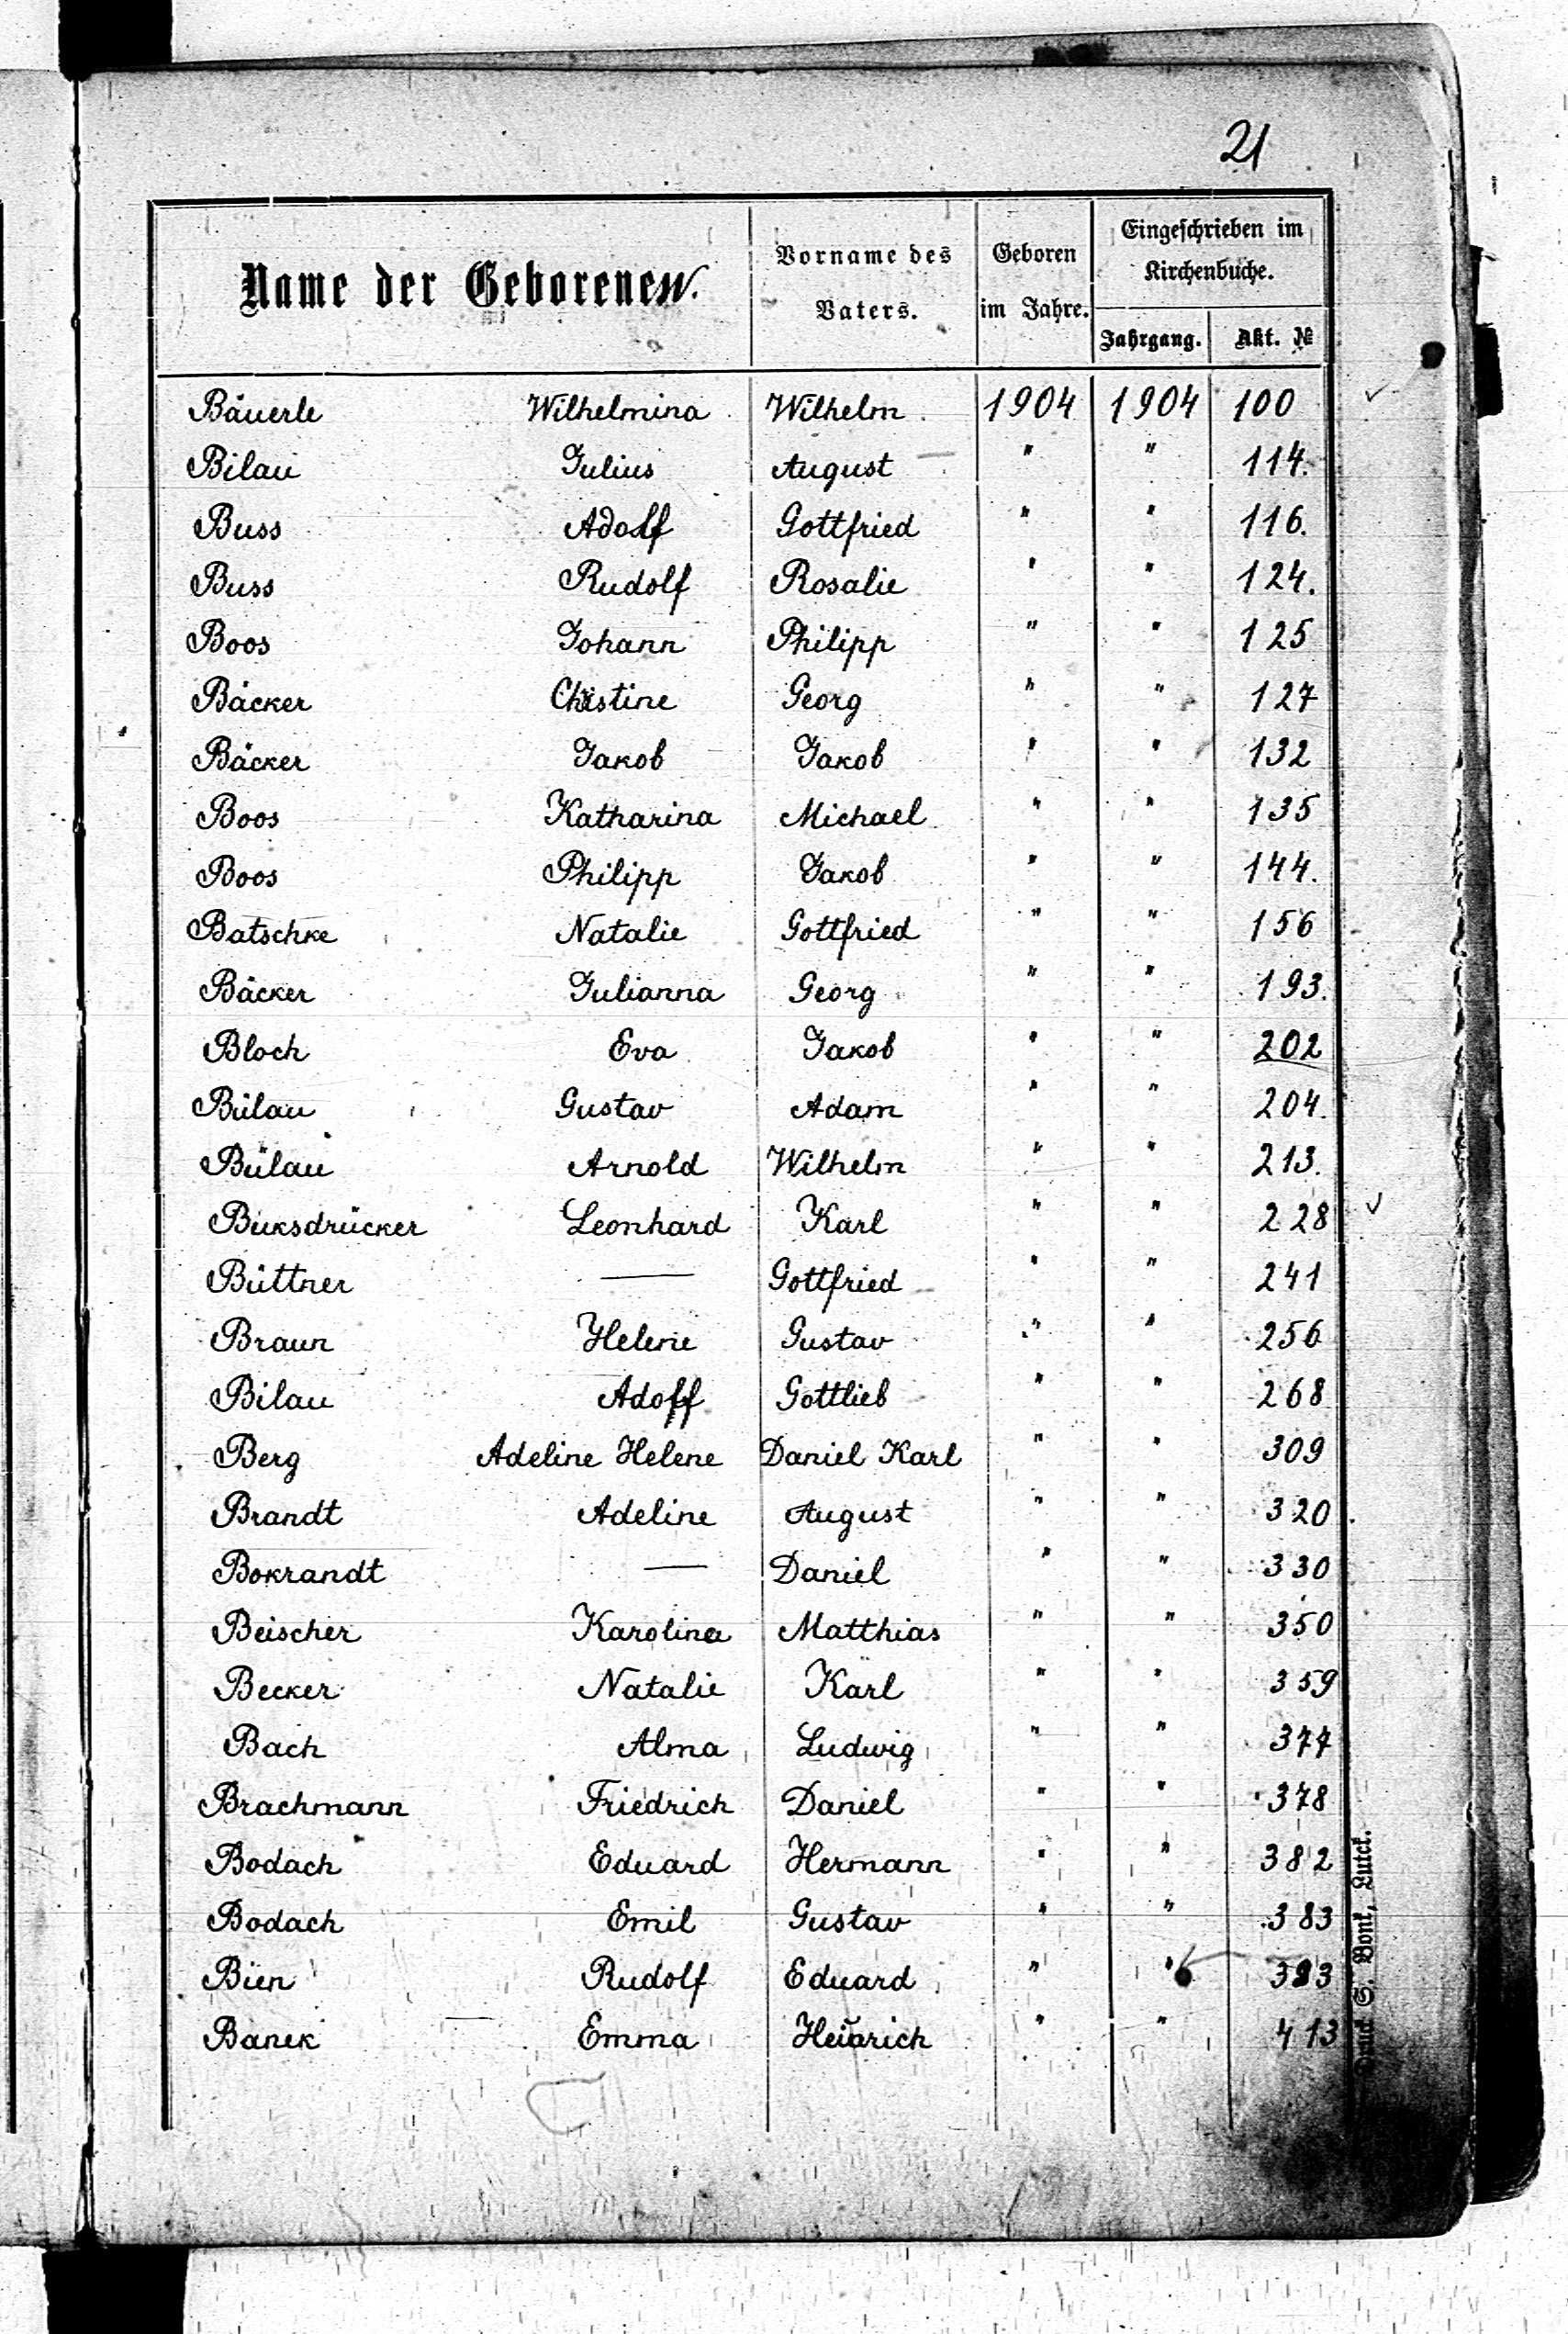 21
Name der Geborenen.
Vorname des
Vaters.
Geboren
im Jahre.
Eingeschrieben im
Kirchenbuche.
Jahrgang. Akt. №
Bäuerle Wilhelmina Wilhelm 1904 1904 100
Bilau Julius August " " 114.
Buss Adolf Gottfried " " 116.
Buss Rudolf Rosalie " " 124.
Boos Johann Philipp " " 125
Bäcker Christine Georg " " 127
Bäcker Jakob Jakob " " 132
Boos Katharina Michael " " 135
Boos Philipp Jakob " " 144.
Batschke Natalie Gottfried " " 156
Bäcker Julianna Georg " " 193.
Bloch Eva Jakob " " 202
Bülau Gustav Adam " " 204.
Bülau Arnold Wilhelm " " 213.
Buksdrücker Leonhard Karl " " 228
Büttner — Gottfried " " 241
Braun Helene Gustav " " 256
Bilau Adolf Gottlieb " " 268
Berg Adeline Helene Daniel Karl " " 309
Brandt Adeline August " " 320
Bokrandt — Daniel " " 330
Beischer Karolina Matthias " " 350
Becker Natalie Karl " " 359
Bach Alma Ludwig " " 377
Brachmann Friedrich Daniel " " 378
Bodach Eduard Hermann " " 382
Bodach Emil Gustav " " 383
Bien Rudolf Eduard " " 393
Banek Emma Heinrich " " 413
Druck S. Bonk, Lutck.